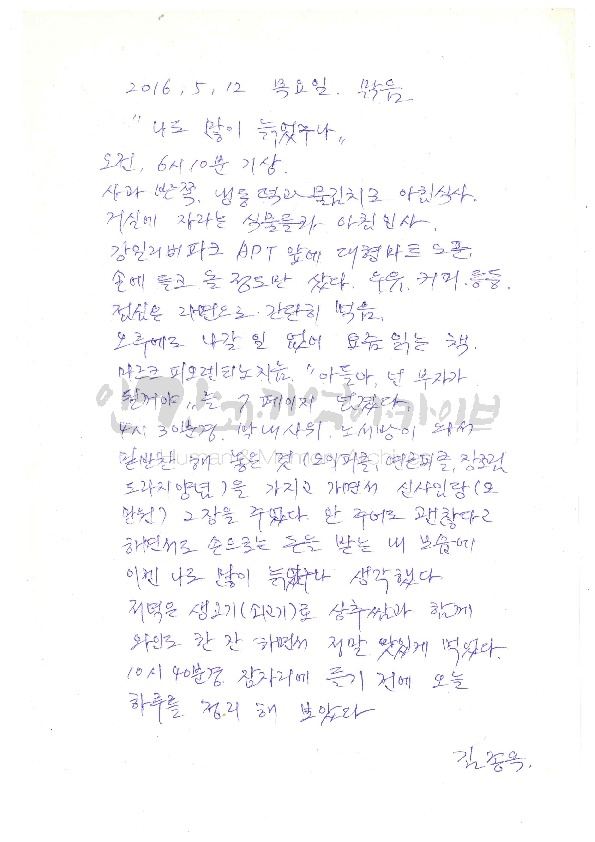 2016, 5, 12 목요일. 맑음
"나도 많이 늙었구나"
오전, 6시 10분 기상.
사과 반쪽, 냉동 떡과 물김치로 아침식사.
거실에 자라는 식물들과 아침 인사.
강일리버파크 APT 앞에 대형마트 오픈,
손에 들고 올 정도만 샀다. 우유, 커피 등등.
점심은 라면으로 간단히 먹음.
오후에도 나갈 일 없어 요즘 읽는 책.
마크 피오렌티노 지음. "아들아, 넌 부자가
될거야" 를 7 페이지 넘겼다.
4시 30분경. 막내사위, 노서방이 와서
밑반찬 해 놓은 것 (오이피클, 연근피클,
도라지양념) 을 가지고 가면서 신사임당 (오
만원) 2장을 주었다. 안 주어도 괜찮다고
하면서도 손으로는 돈을 받는 내 모습에
이젠 나도 많이 늙었구나 생각했다
저녁은 생고기(쇠고기)로 상추쌈과 함께
와인도 한 잔 하면서 정말 맛있게 먹었다.
10시 40분경 잠자리에 들기 전에 오늘
하루를 정리 해 보았다
김종옥.
인간과기억아카이브
Human & Memory Archive